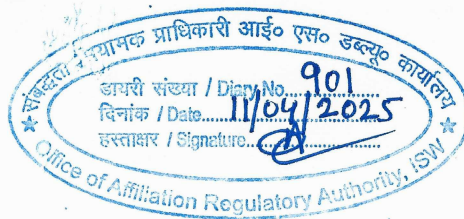 संबद्धता नियामक प्राधिकारी आई० एस० डब्ल्यू० कार्यालय
डायरी संख्या / Diary No. 901
दिनांक / Date 11/04/2025
हस्ताक्षर / Signature
Office of Affiliation Regulatory Authority, ISW